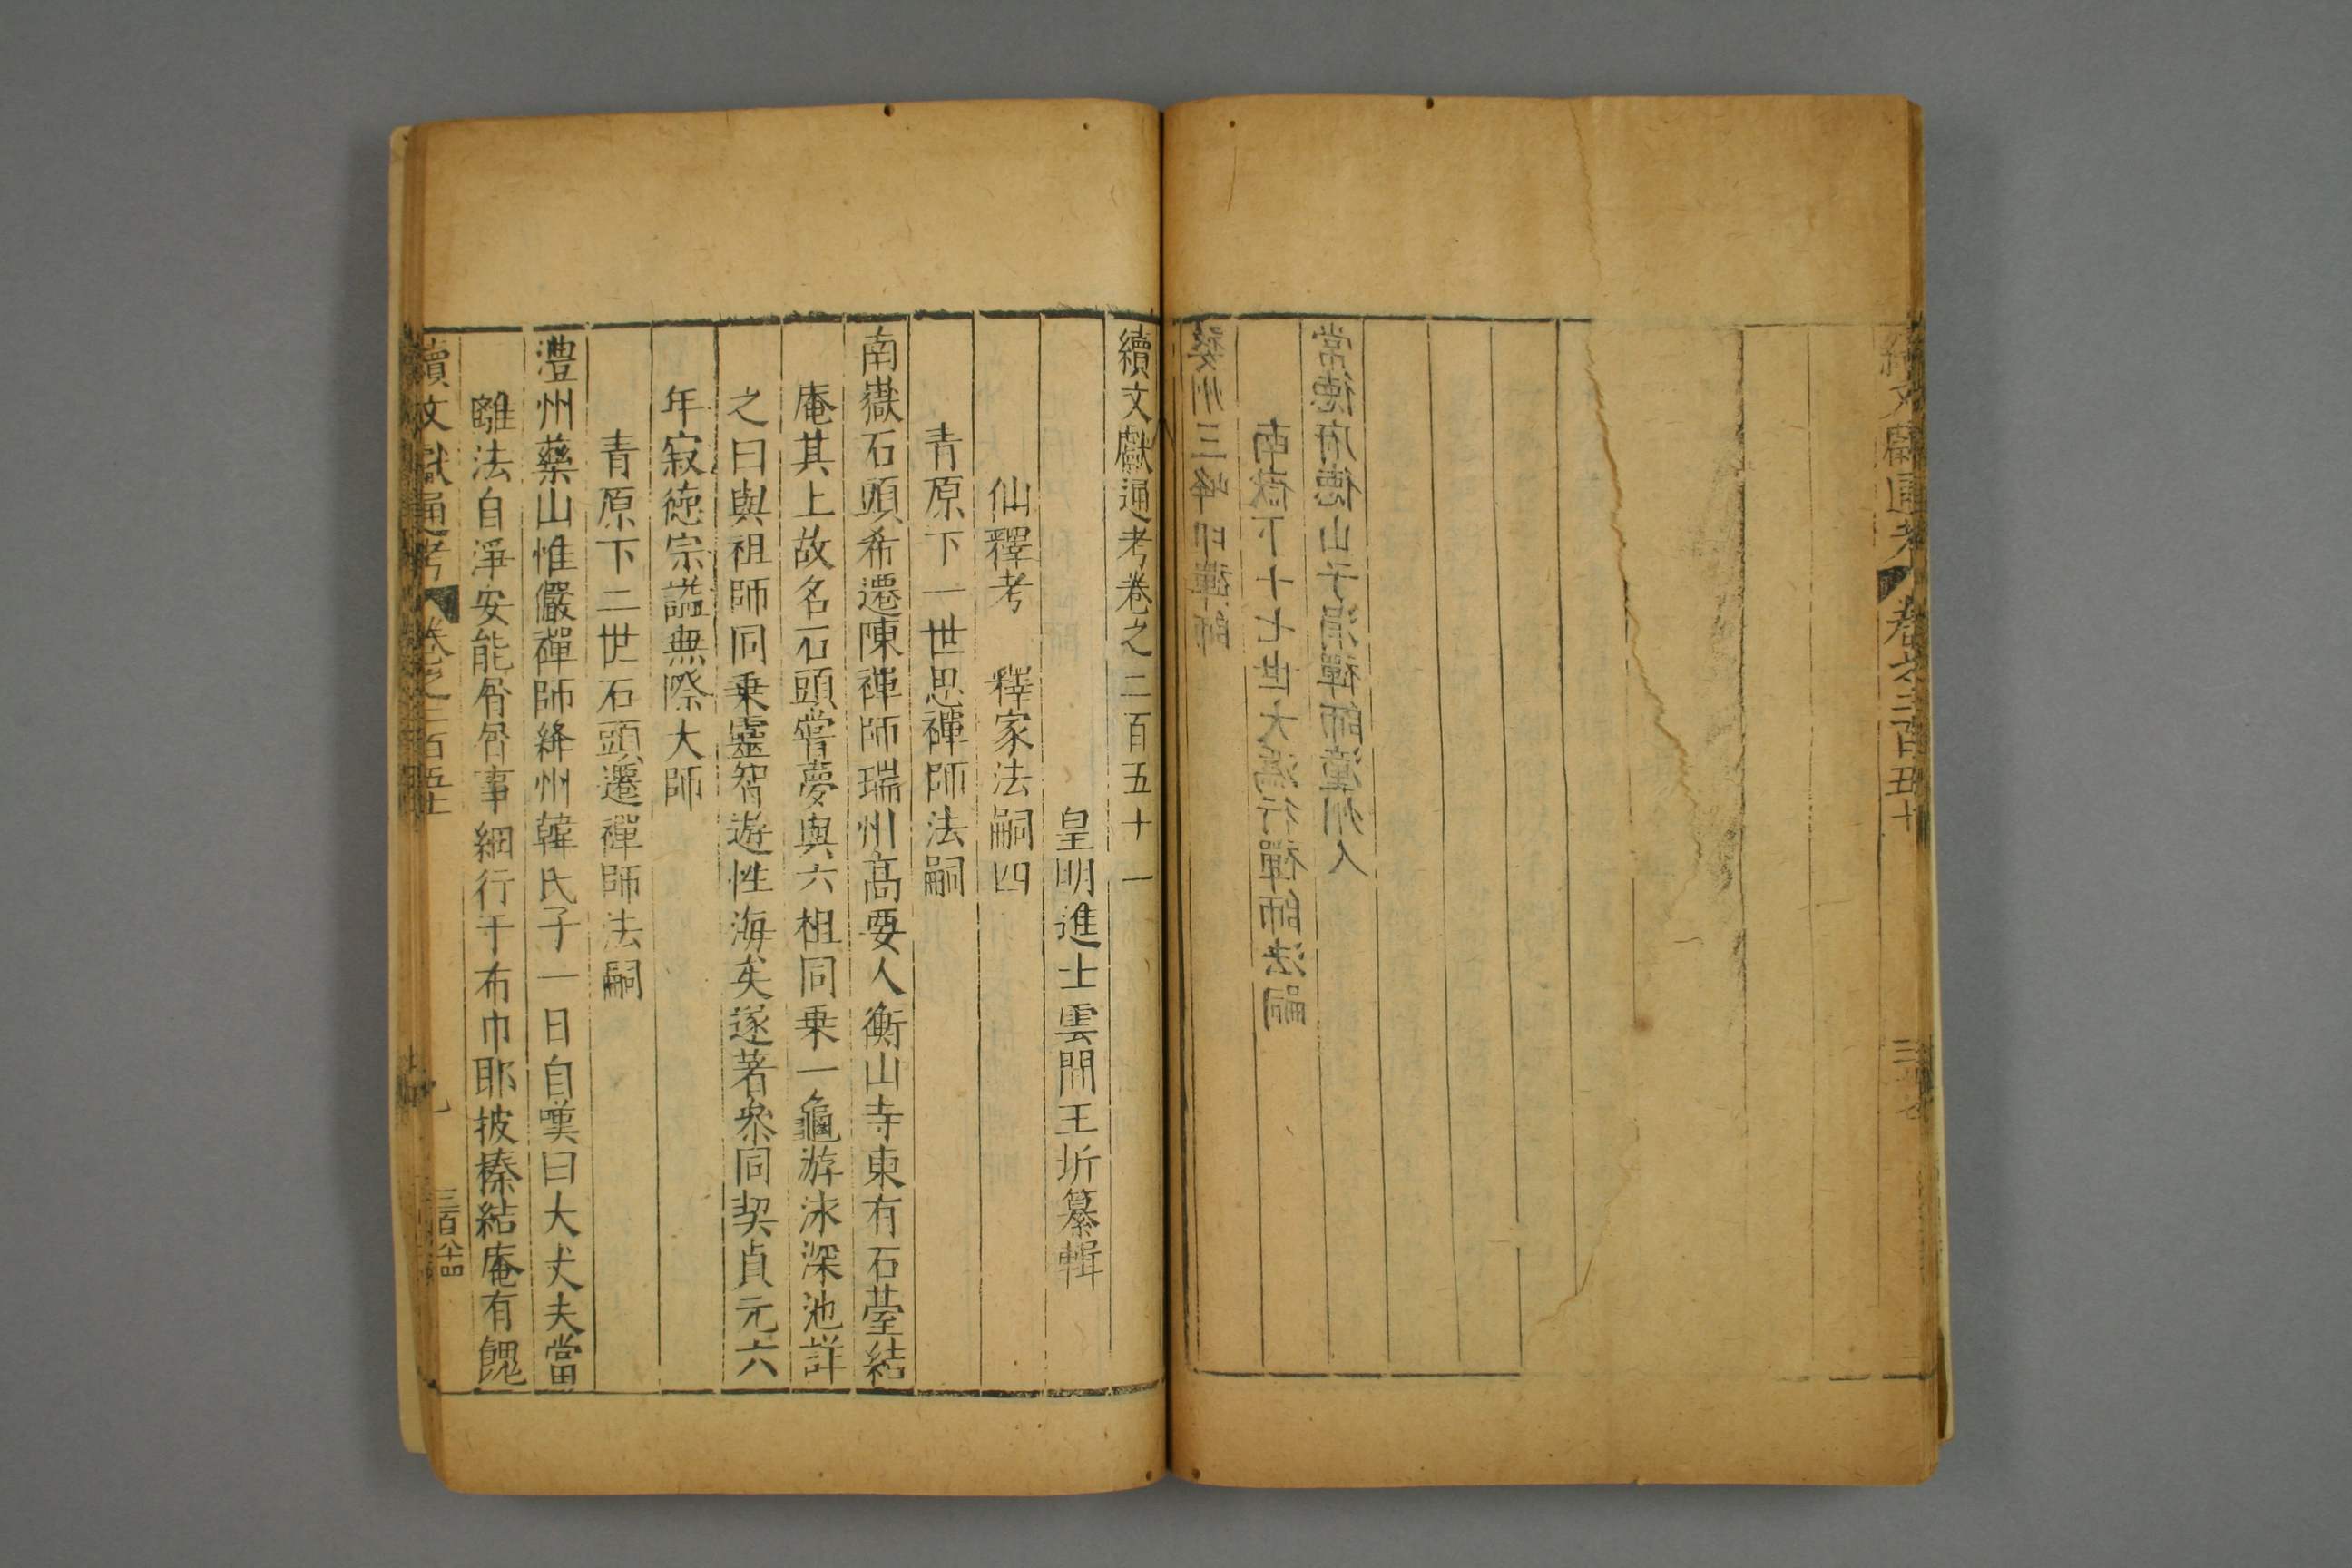 婺州三峰印禪師
南嶽下十七世大溈行禪師法嗣
常德府德山子涓禪師潼州人
續文獻通考 卷之二百五十
續文獻通考卷之二百五十一
皇明進士雲間王圻纂輯
仙釋考 釋家法嗣四
青原下一世思禪師法嗣
南嶽石頭希遷陳禪師瑞州高要人衡山寺東有石臺結
庵其上故名石頭嘗夢與六祖同乗一龜游泳深池詳
之曰與祖師同乗靈智遊性海矣遂著叅同契貞元六
年寂德宗謚無際大師
青原下二世石頭遷禪師法嗣
澧州藥山惟儼禪師絳州韓氏子一日自嘆曰大丈夫當
離法自淨安能屑屑事細行于布巾耶披榛結庵有餽
續文獻通考 卷之二百五十一
三百八十四